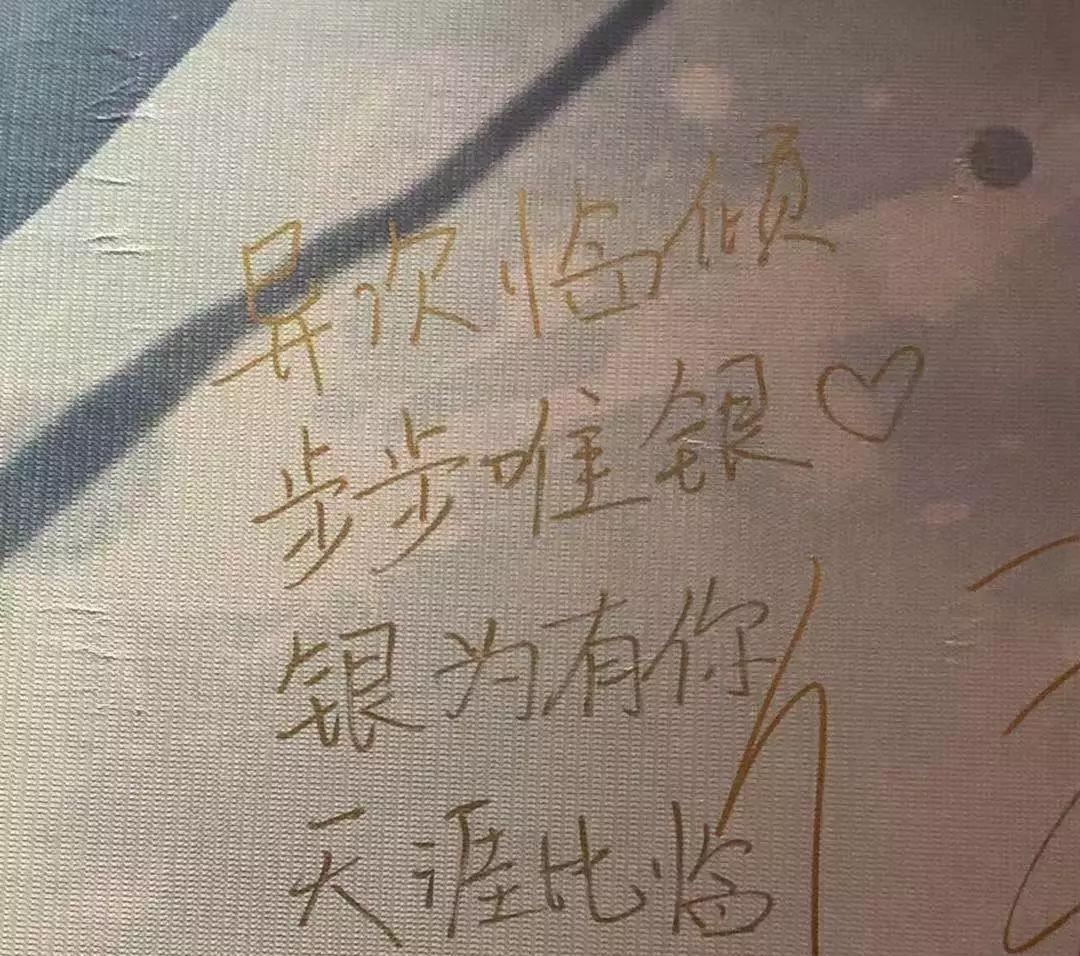 异次临倾
步步唯银♡
银为有你
天涯比临